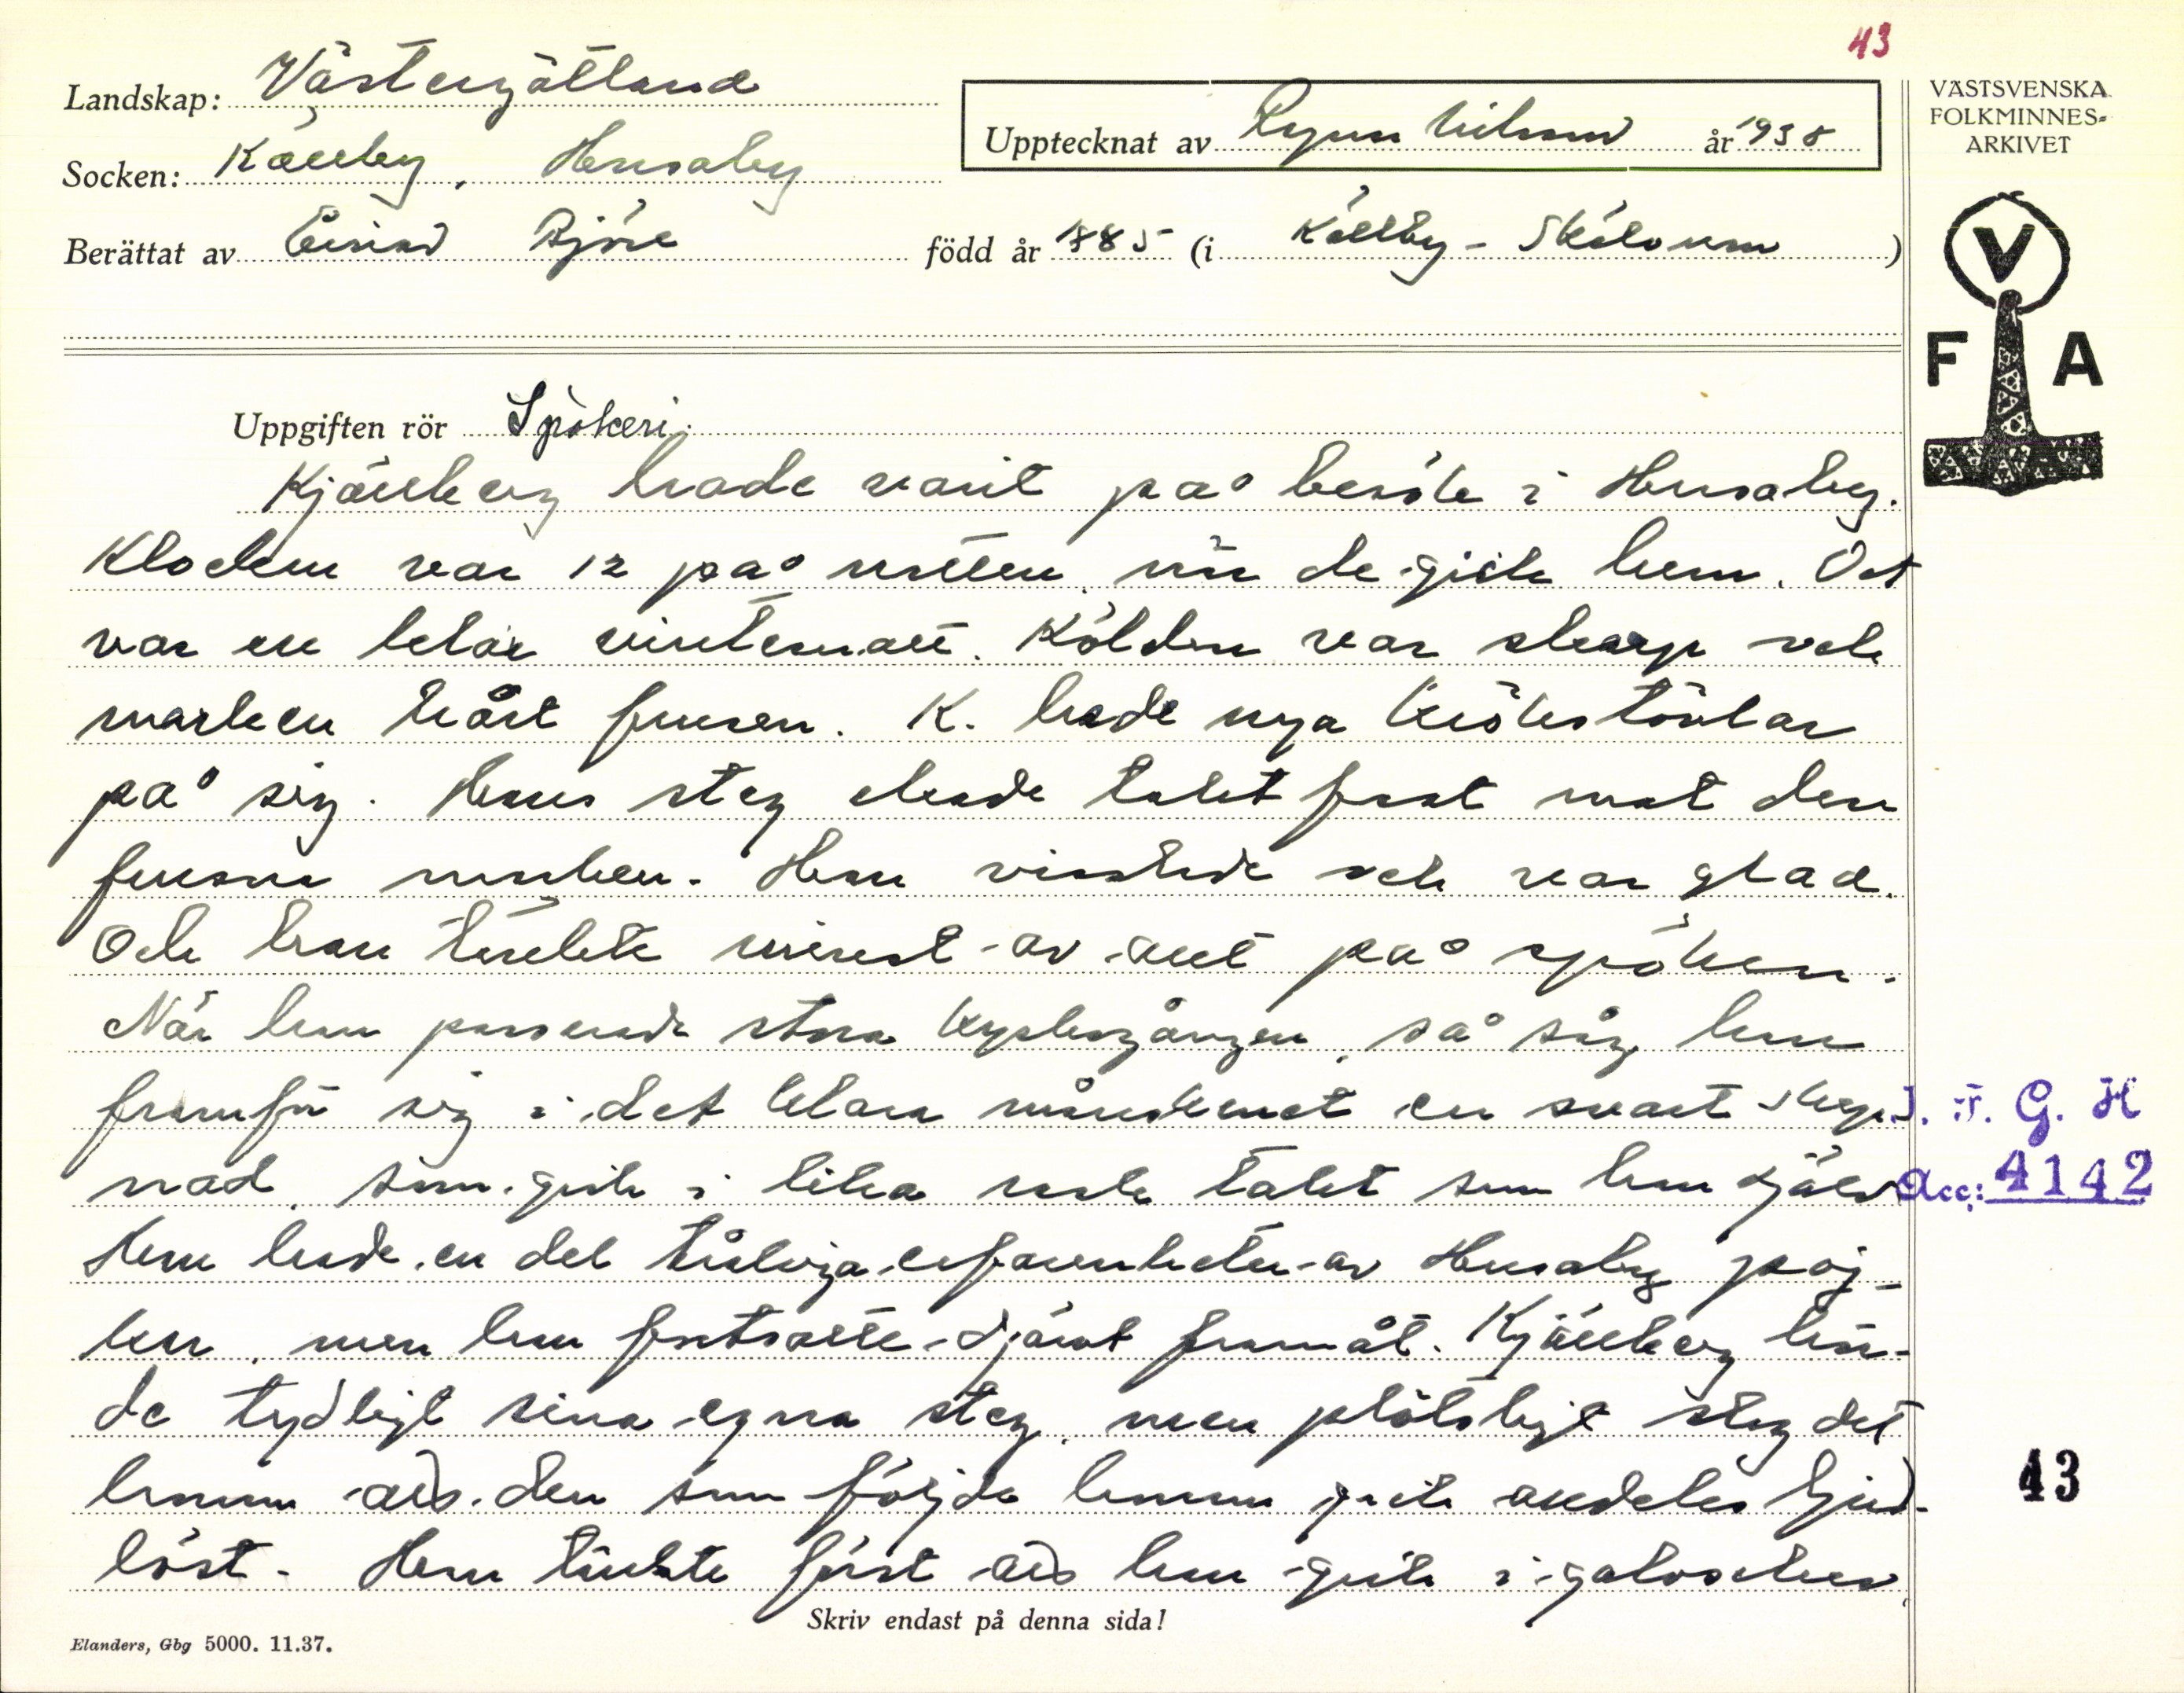 43
Landskap: Västergötland
Socken: Källby, Husaby
Upptecknat av Ragnar Nilsson år 1938
VÄSTSVENSKA
FOLKMINNES-
ARKIVET
Berättat av Björe född år 1885 (i Källby - Skälvum)
V
F A
Uppgiften rör Spökeri.
Kjällberg hade varit på besök i Husaby.
Klockan var 12 på natten, när de gick hem. Det
var en klar vinternatt. Kölden var skarp och
marken hårt frusen. K. hade nya kröksstövlar
på sig. Hans steg ekade taktfast mot den
frusna marken. Han visslade och var glad.
Och han tänkte minst av allt på spöken.
När han passerade stora kyrkogången, så såg han
framför sig i det klara månskenet en svart skep-
nad, som gick i lika rask takt som han själv.
Han hade en del tråkiga erfarenheter av Husaby poj-
kar, men han fortsatte djärvt framåt. Kjällberg hör-
de tydligt sina egna steg, men plötsligt slog det
honom att den som följde honom gick alldeles ljud-
löst. Han tänkte först att han gick i galoscher,
J. F. G. H
Acc: 4142
43
Skriv endast på denna sida!
Elanders, Gbg 5000. 11.37.